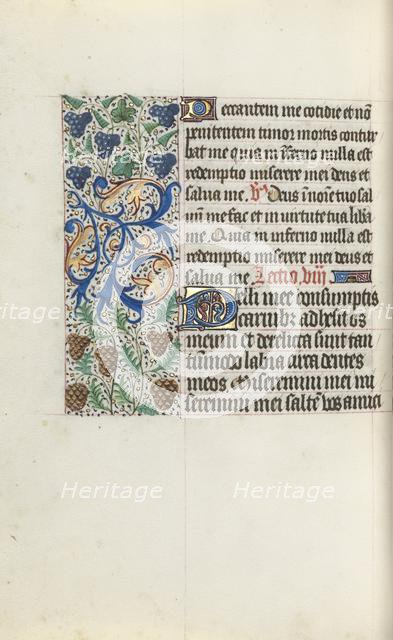 Peccantem me cotidie et nō
penitentem timor mortis contur
bat me Quia in īferno nulla est
redemptio miserere mei deus et
salua me. Deus ī noīe tuo sal
uū me fac et in virtute tua liba
me. Quia in inferno nulla est
redemptio miserere mei deus et
salua me Lectio viij
Pelli mee consumptis
carnibz adhesit os
meum et derelicta sunt tan
tūmodo labia circa dentes
meos Miseremini mei mi
seremini mei saltē vos amici
Heritage
Heritage
Heritage
Heritage
Heritage
Heritage